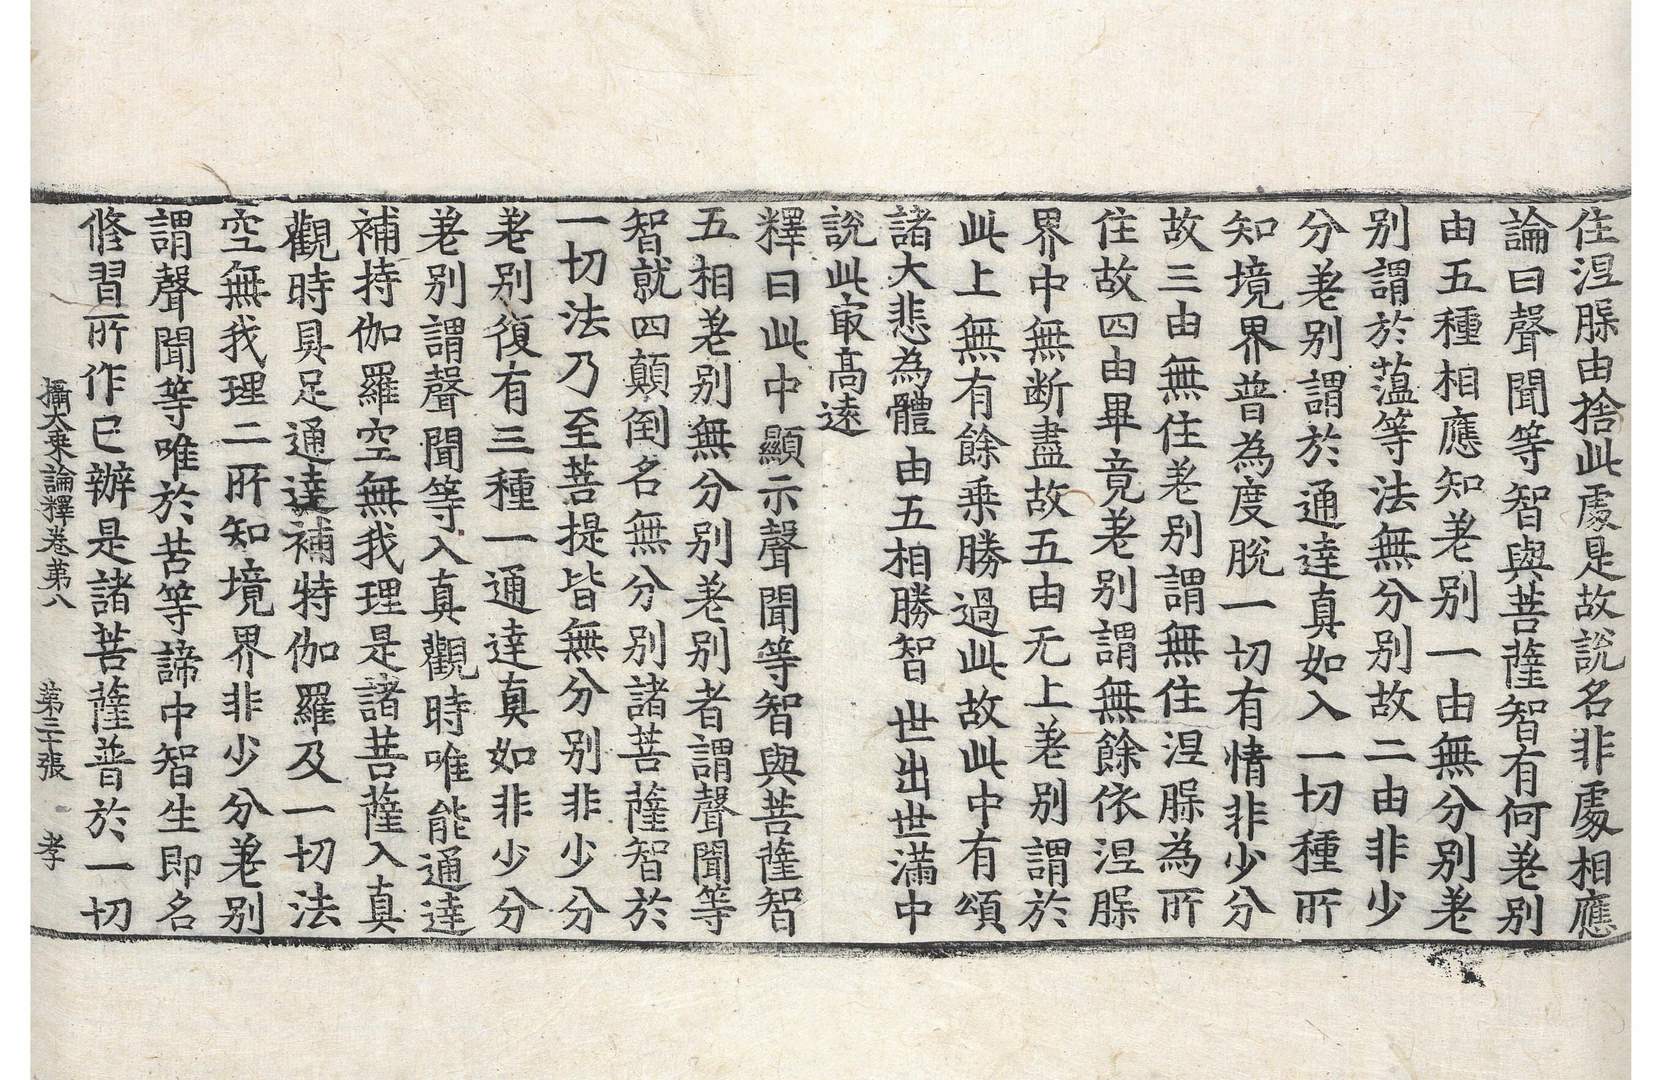 住涅槃由捨此處是故說名非處相應
論曰聲聞等智與菩薩智有何差別
由五種相應知差別一由無分別差
別謂於薀等法無分別故二由非少
分差別謂於通達真如入一切種所
知境界普為度脫一切有情非少分
故三由無住差別謂無住涅槃為所
住故四由畢竟差別謂無餘依涅槃
界中無断盡故五由无上差別謂於
此上無有餘乘勝過此故此中有頌
諸大悲為體由五相勝智 世出世滿中
說此㝡高遠
釋曰此中顯示聲聞等智與菩薩智
五相差別無分別差別者謂聲聞等
智就四顛倒名無分別諸菩薩智於
一切法乃至菩提皆無分別非少分
差別復有三種一通達真如非少分
差別謂聲聞等入真觀時唯能通達
補特伽羅空無我理是諸菩薩入真
觀時具足通達補特伽羅及一切法
空無我理二所知境界非少分差別
謂聲聞等唯於苦等諦中智生即名
修習所作已辦是諸菩薩普於一切
攝大乘論釋卷第八 第三十張 孝